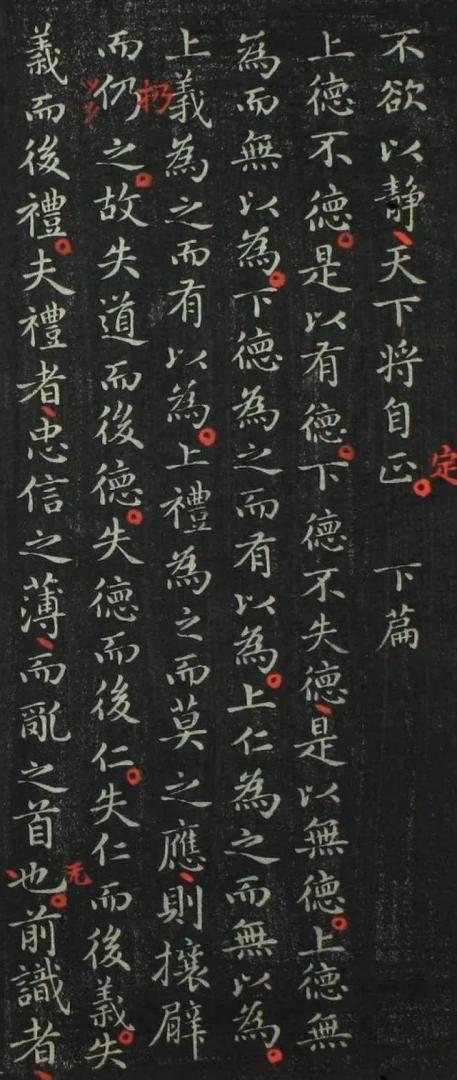 不欲以静、天下将自正。 下篇
定
上德不德。是以有德。下德不失德、是以無德。上德無
為而無以為。下德為之而有以為。上仁為之而無以為。
上義為之而有以為。上禮為之而莫之應、則攘臂
扔
而仍之。故失道而後德。失德而後仁。失仁而後義。失
義而後禮。夫禮者、忠信之薄、而亂之首也。前識者、
无